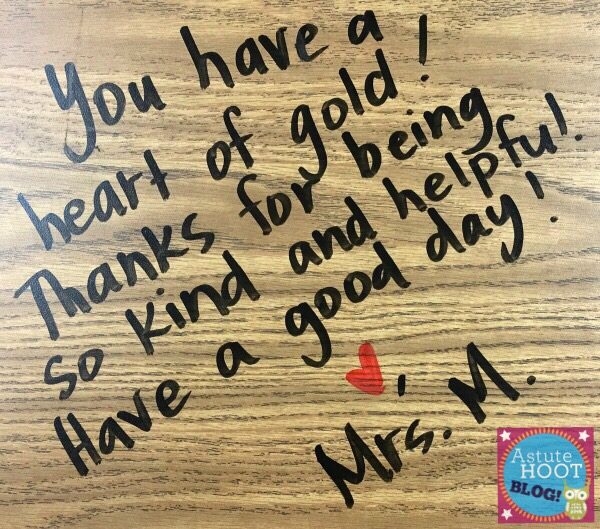 You have a
heart of gold!
Thanks for being
so kind and helpful!
Have a good day!
♥,
Mrs. M.
Astute
HOOT
BLOG!